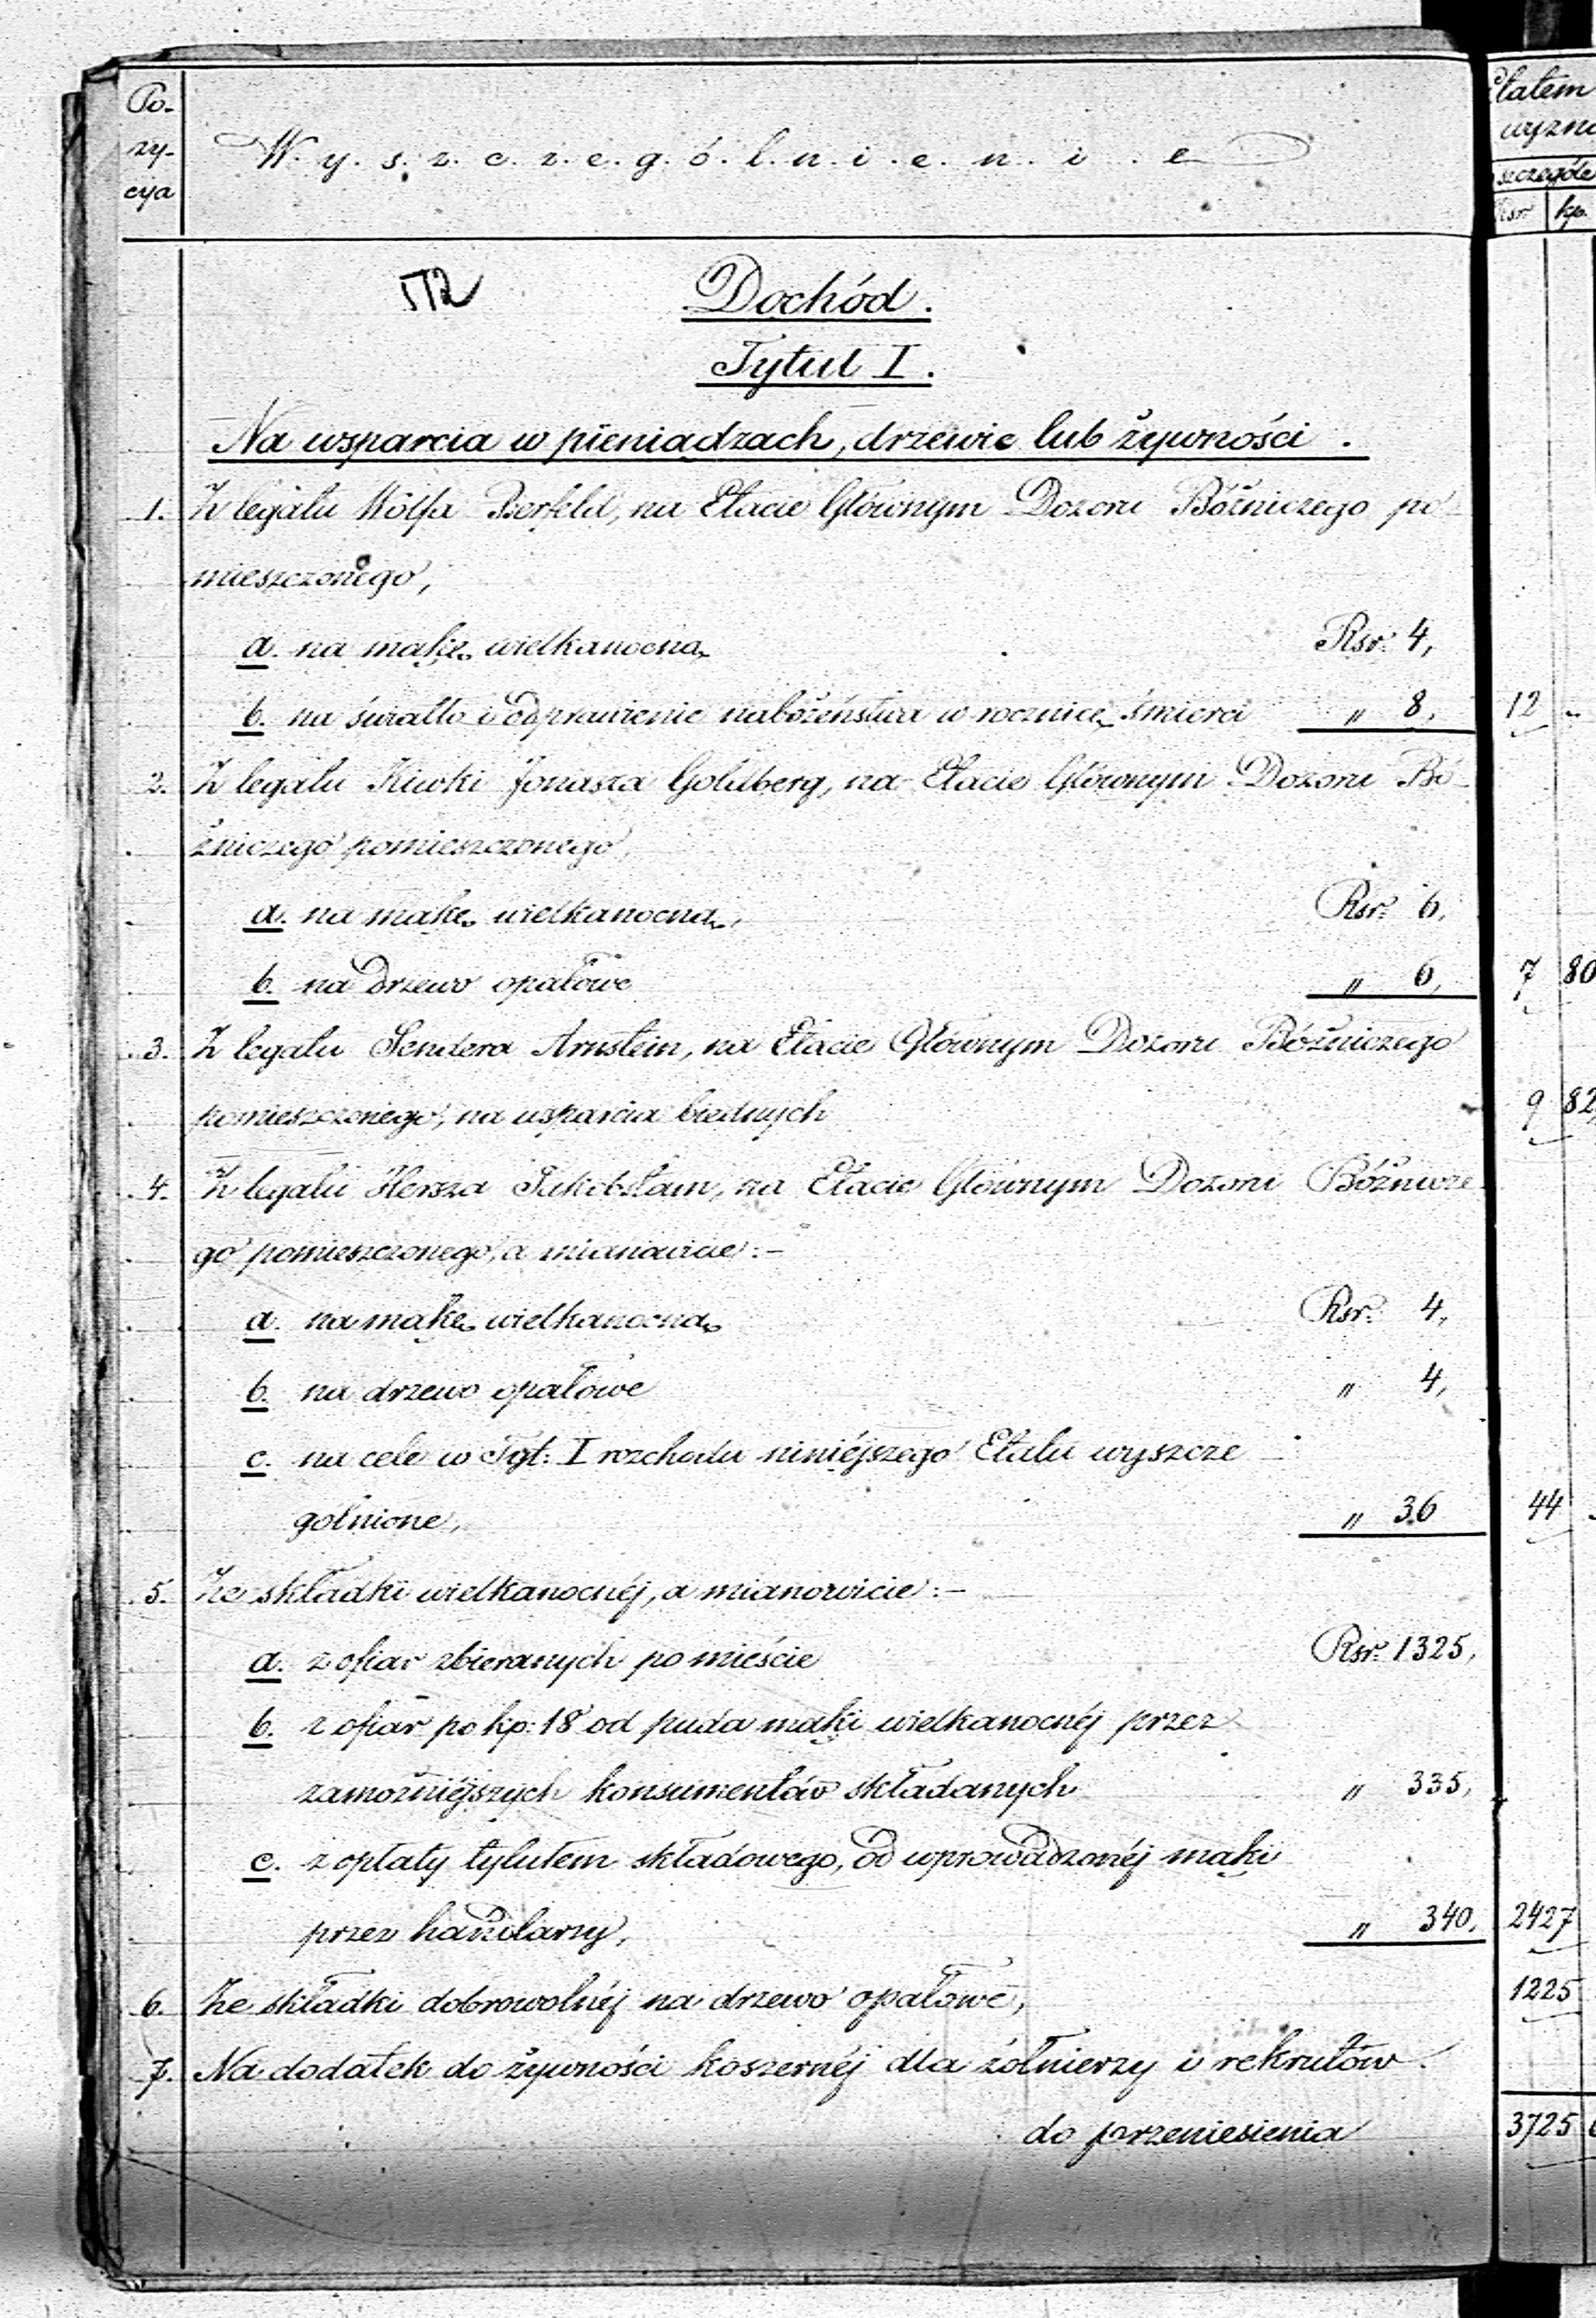 Po-
zy-
cija
W. y. s. z. c. z. e. g. ó. l. n. i. e. n. i. e
Etatem
wyzna
szczegóło
Rsr kp.
172
Dochód.
Tytuł I.
Na wsparcia w pieniądzach, drzewie lub żywności.
1. Z legatu Wólfa, na Etacie Głównym Dozoru Bóżniczego po-
mieszczonego,
a. na mąkę wielkanocną Rsr: 4,
b. na światło i odprawienie nabożeństwa w rocznicę śmierci " 8, 12 "
2. Z legatu Kiwki Jonasza Goldberg, na Etacie Głównym Dozoru Bó-
żniczego pomieszczonego,
a. na mąkę wielkanocną, Rsr: 6,
b. na drzewo opałowe " 6, 7 80
3. Z legatu Sendera Arnstein, na Etacie Głównym Dozoru Bóżniczego
pomieszczonego, na wsparcia biednych 9 82
4. Z legatu Hersza, na Etacie Głównym Dozoru Bóżnicze-
go pomieszczonego, a mianowicie:-
a. na mąkę wielkanocną Rsr: 4,
b. na drzewo opałowe " 4,
c. na cele w Tyt: I rozchodu niniéjszego Etatu wyszcze-
gólnione, " 36 44
5. Ze składki wielkanocnéj, a mianowicie:-
a. z ofiar zbieranych po mieście Rsr: 1325,
b. z ofiar po kp: 18 od puda mąki wielkanocnéj przez
zamożniéjszych konsumentów składanych " 335,
c. z opłaty tytułem składowego, od wprowadzonéj mąki
przez handlarzy, " 340, 2427
6. Ze składki dobrowolnéj na drzewo opałowe, 1225
7. Na dodatek do żywności koszernéj dla żołnierzy i rekrutów.
do przeniesienia 3725